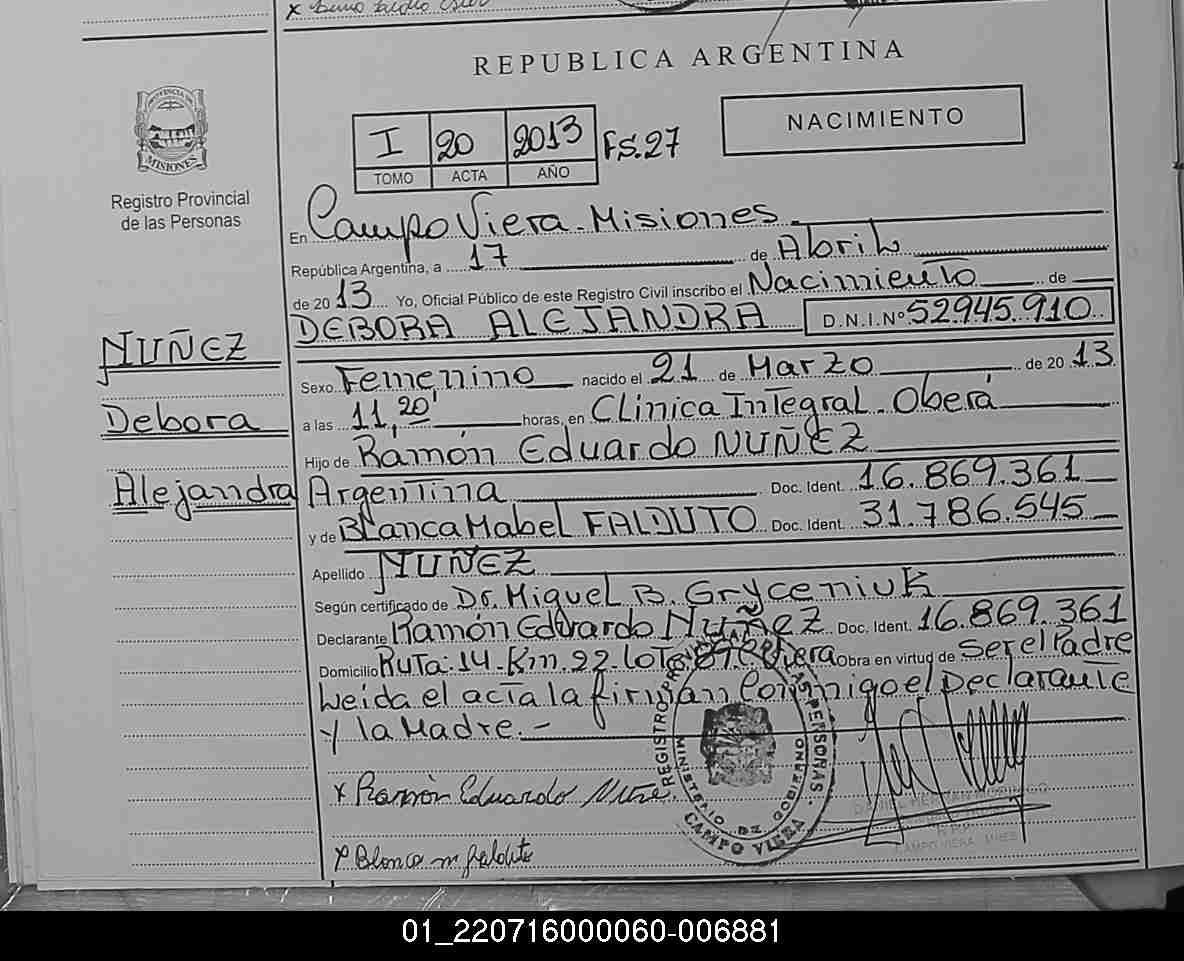 REPUBLICA ARGENTINA
PROVINCIA DE
MISIONES
I 20 2013 Fs.27
TOMO ACTA AÑO
NACIMIENTO
Registro Provincial
de las Personas
En Campo Viera - Misiones
República Argentina, a 17 de Abril
de 2013 Yo, Oficial Público de este Registro Civil inscribo el Nacimiento de
DEBORA ALEJANDRA D.N.I.Nº 52945.910
NUÑEZ
Debora
Alejandra
Sexo Femenino nacido el 21 de Marzo de 2013
a las 11,20' horas, en Clinica Integral - Oberá
Hijo de Ramón Eduardo NUÑEZ
Argentina Doc. Ident. 16.869.361
y de Blanca Mabel FALDUTO Doc. Ident. 31.786.545
Apellido NUÑEZ
Según certificado de Dr. Miguel B. Gryceniuk
Declarante Ramón Eduardo NUÑEZ Doc. Ident. 16.869.361
Domicilio Ruta-14-Km.22-Lote Viera Obra en virtud de Ser el Padre
Leída el acta la firman Conmigo el Declarante
y la Madre.-
x Ramón Eduardo Nuñe
x Blanca m falduto
REGISTRO PERSONAS
MINISTERIO DE GOBIERNO
CAMPO VIERA
CAMPO VIERA
01_220716000060-006881